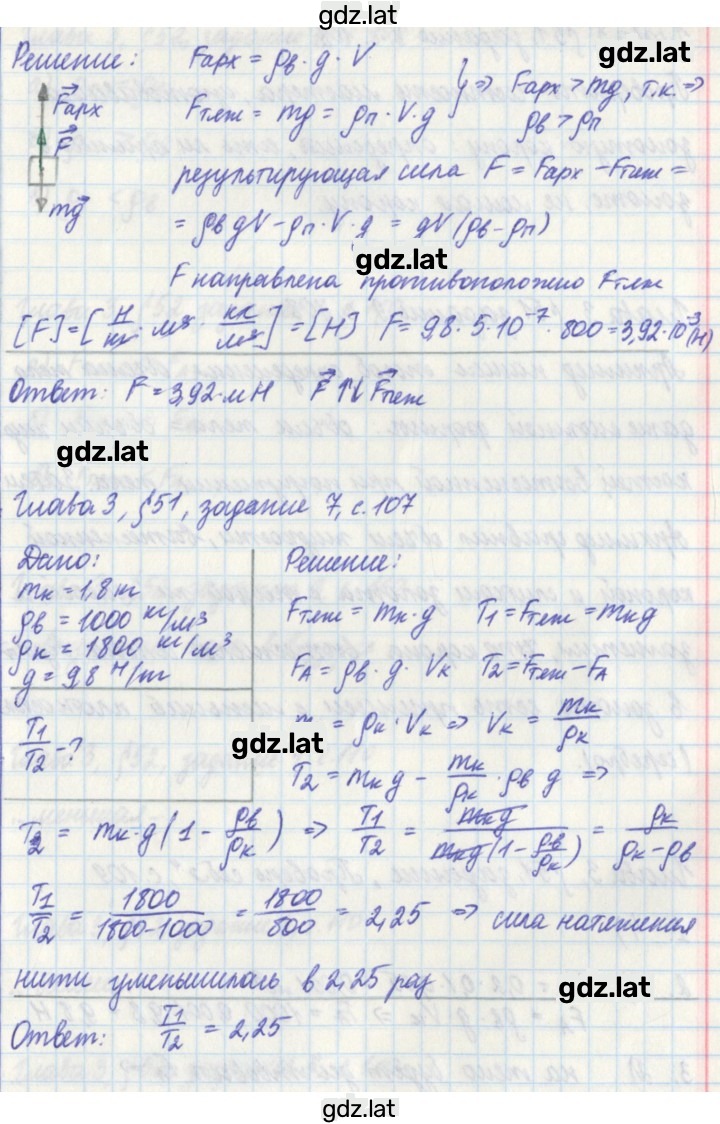 gdz.lat
Решение: Fарх = ρв · g · V
gdz.lat
Fтяж = mg = ρп · V · g } ⇒ Fарх > mg, т.к. ⇒
ρв > ρп
Fарх
F
mg
результирующая сила F = Fарх − Fтяж =
= ρв gV − ρп · V · g = gV (ρв − ρп)
gdz.lat
F направлена противоположно Fтяж
[F] = [Н/кг · м³ · кг/м³] = [Н] F = 9,8 · 5 · 10⁻⁷ · 800 = 3,92 · 10⁻³ (Н)
Ответ: F = 3,92 · мН F ↑↓ Fтяж
gdz.lat
Глава 3, §51, задание 7, с. 107
Дано:
mк = 18 т
ρв = 1000 кг/м³
ρк = 1800 кг/м³
g = 9,8 Н/т
T₁/T₂ - ?
Решение:
Fтяж = mк · g T₁ = Fтяж = mкg
FА = ρв · g · Vк T₂ = Fтяж − FА
= ρк · Vк ⇒ Vк = mк/ρк
gdz.lat
T₂ = mк g − mк/ρк · ρв g ⇒
T₂ = mк · g (1 − ρв/ρк) ⇒ T₁/T₂ = mкg/mкg(1 − ρв/ρк) = ρк/ρк − ρв
T₁/T₂ = 1800/1800−1000 = 1800/800 = 2,25 ⇒ сила натяжения
нити уменьшилась в 2,25 раз
gdz.lat
Ответ: T₁/T₂ = 2,25
gdz.lat